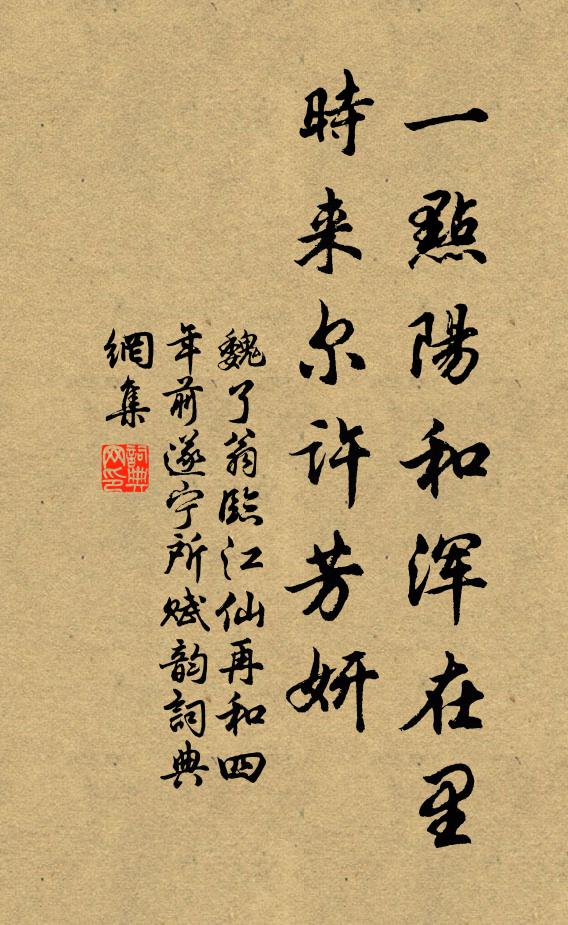 一點陽和浑在里
時来尔許芳妍
魏了翁臨江仙再和四
年前遂宁所赋韵詞典
網集
詞典网印